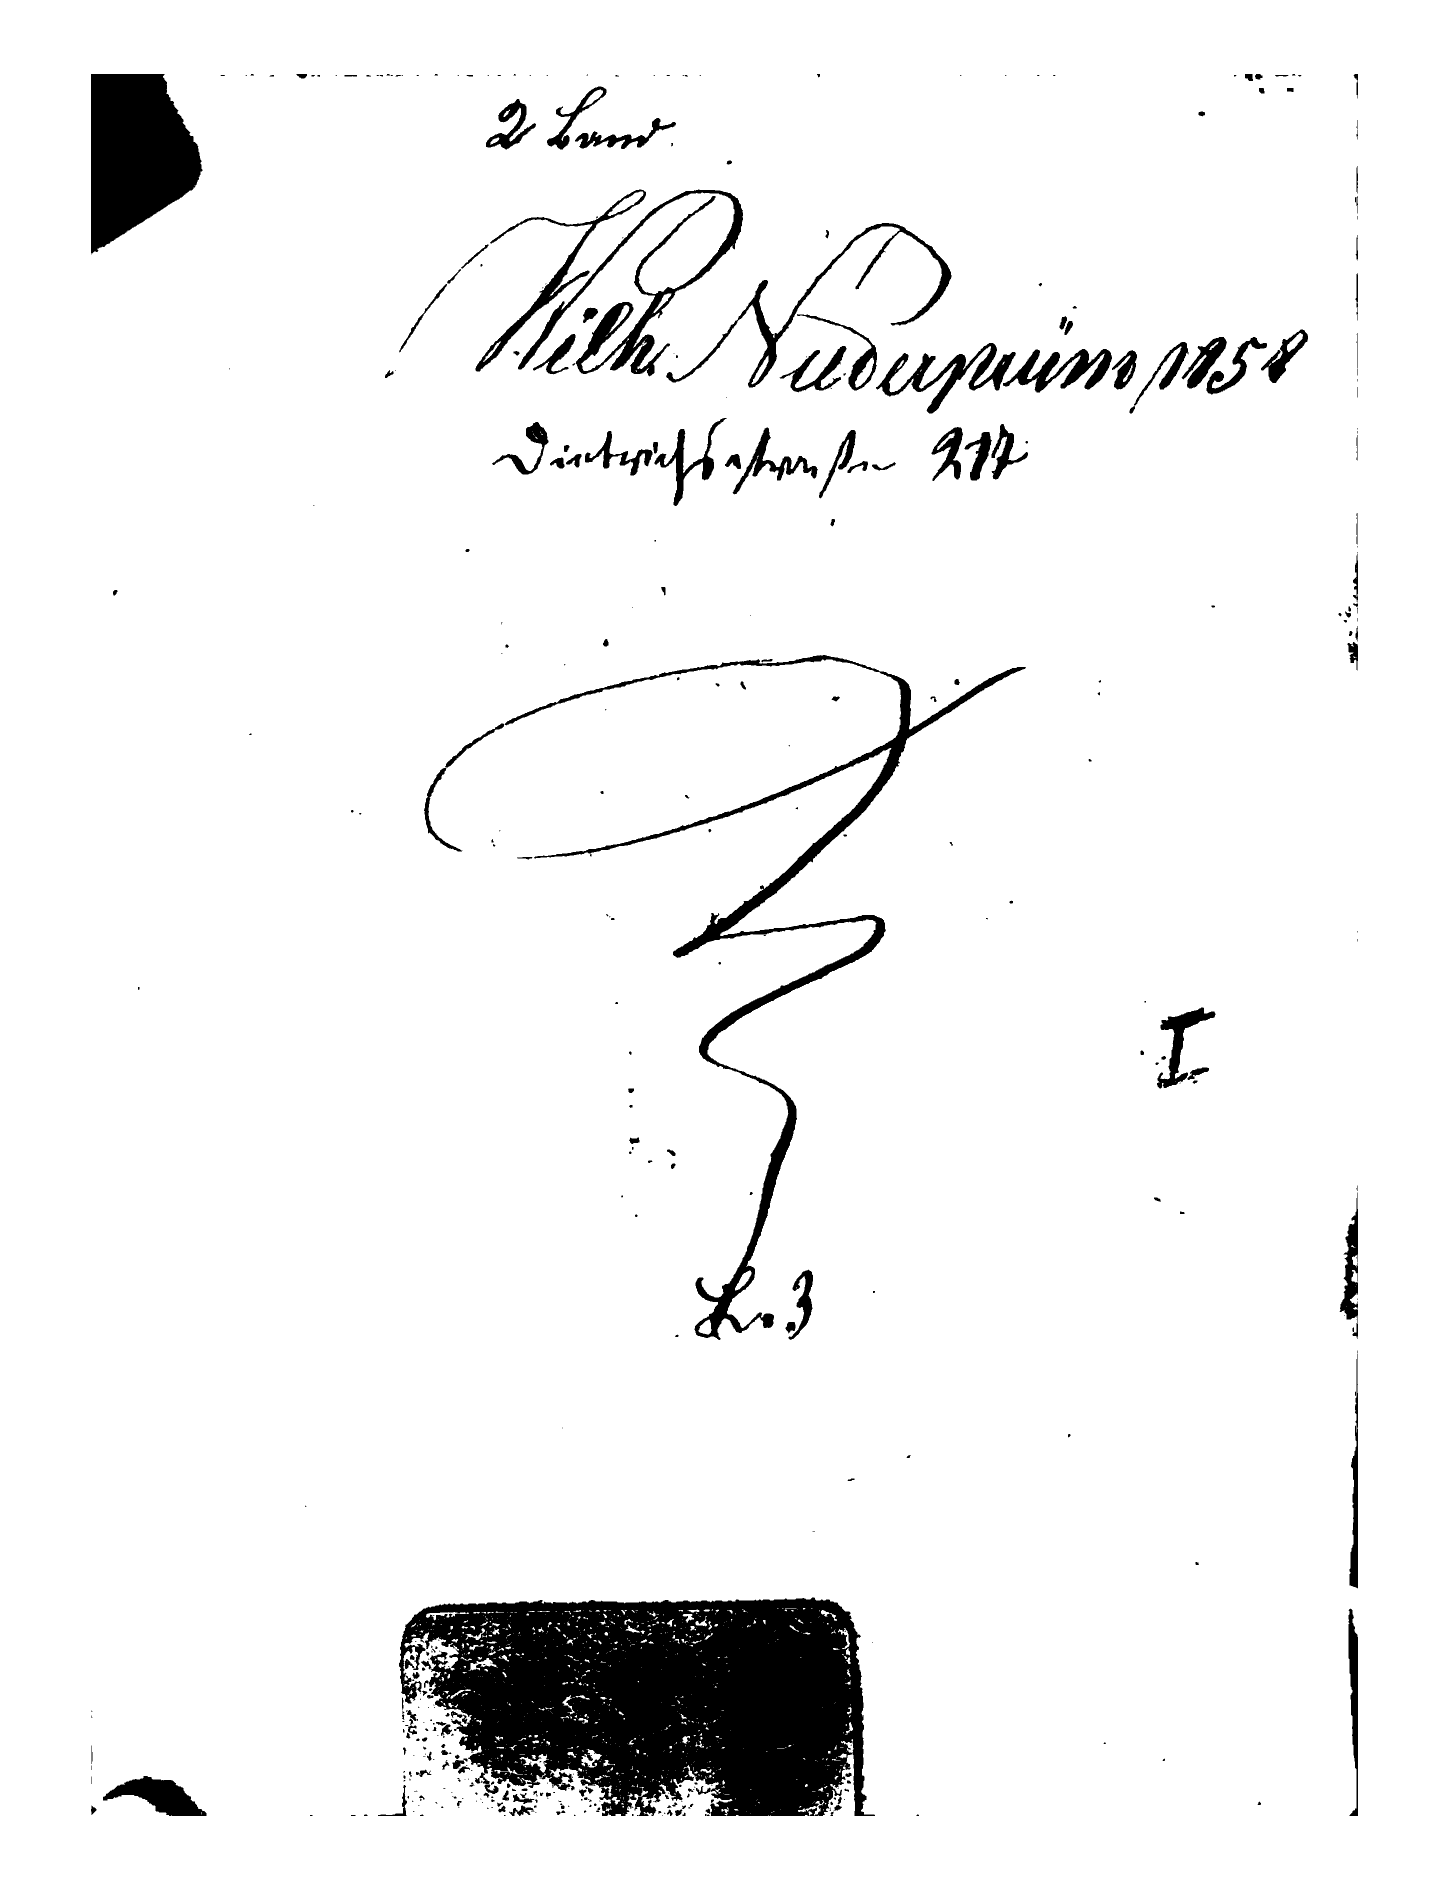 2 Band.
Wilh. Niederprüm 1858
Dietrichsstrasse 217
I
L. 3